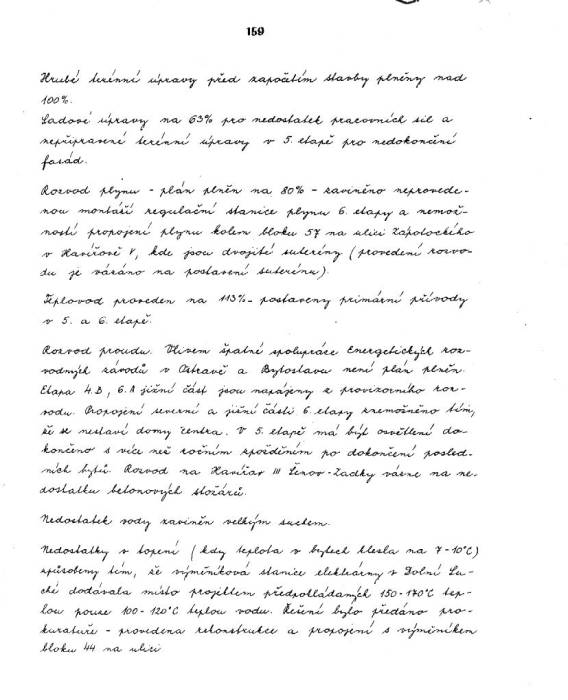 159
Hrubé terénní úpravy před započítím stavby plněny nad
100%.
Sadové úpravy na 63% pro nedostatek pracovních sil a
nepřipravené terénní úpravy v 5. etapě pro nedokončení
fasád.
Rozvod plynu - plán plněn na 80% - zaviněno neprovede-
nou montáží regulační stanice plynu 6. etapy a nemož-
ností propojení plynu kolem bloku 57 na ulici Zápotockého
v Havířově V, kde jsou dvojité suterény (provedení rozvo-
du je vázáno na postavení suterénu).
Teplovod proveden na 113% - postaveny primární přívody
v 5. a 6. etapě.
Rozvod proudu. Vlivem špatné spolupráce Energetických roz-
vodných závodů v Ostravě a Bytostavu není plán plněn.
Etapa 4.B, 6.A jižní část jsou napájeny z provizorního roz-
vodu. Propojení severní a jižní části 6. etapy znemožněno tím,
že se nestaví domy centra. V 5. etapě má být osvětlení do-
končeno s více než ročním zpožděním po dokončení posled-
ních bytů. Rozvod na Havířov III Šenov-Zadky vázne na ne-
dostatku betonových stožárů.
Nedostatek vody zaviněn velkým suchem.
Nedostatky v topení (kdy teplota v bytech klesla na 7-10°C)
způsobeny tím, že výměníková stanice elektrárny v Dolní Su-
ché dodávala místo projektem předpokládaných 150-170°C tep-
lou pouze 100-120°C teplou vodu. Řešení bylo předáno pro-
kuratuře - provedena rekonstrukce a propojení s výměníkem
bloku 44 na ulici